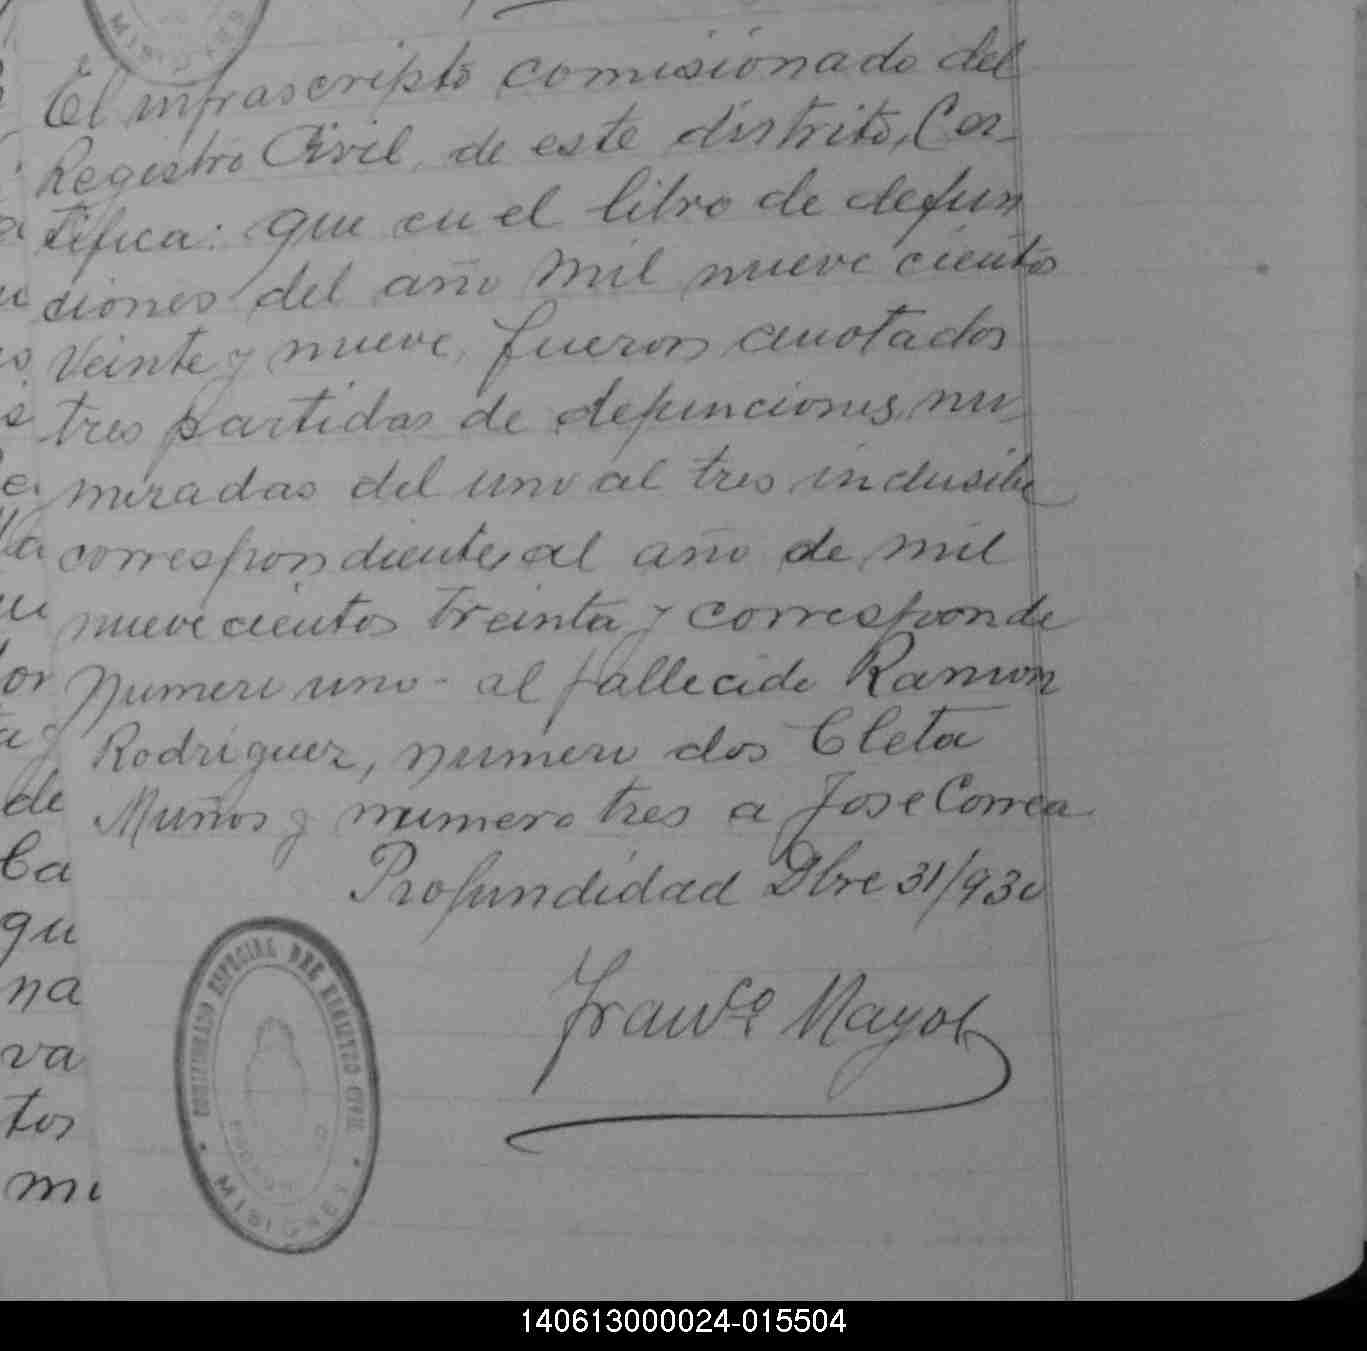 El infrascripto comisionado del
Registro Civil, de este distrito, Cer-
tifica: que en el libro de defun
ciones del año mil nueve cientos
veinte y nueve, fueron anotados
tres partidas de defunciones, nu-
meradas del uno al tres inclusibe
correspondientes al año de mil
nueve cientos treinta y corresponde
numero uno - al fallecido Ramon
Rodriguez, numero dos Cleta
Muños y numero tres a Jose Correa
Profundidad Dbre 31/930
Franco Mayol
COMISIONADO ESPECIAL DEL REGISTRO CIVIL
MISIONES
de
Ca
qu
na
va
tos
mi
140613000024-015504